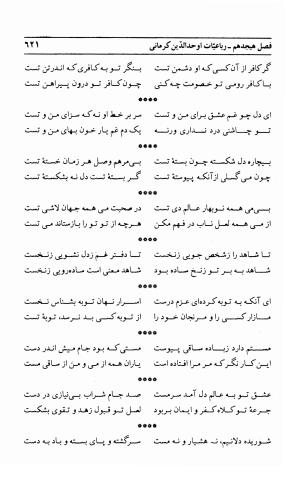 فصل هیجدهم ـ رباعیّات اوحدالدّین کرمانی ۶۲۱
گر کافر از آن کسی که او دشمن تست بنگر تو به کافری که اندر تن تست
با کافر رومی تو خصومت چه کنی چون کافر تو درون پیراهن تست
****
ای دل چو غم عشق برای من و تست سر بر خط او نه که سزای من و تست
تو چاشنی درد نداری ورنه یک دم غم یار خون بهای من و تست
****
بیچاره دل شکسته چون بستهٔ تست بی‌مرهم وصل هر زمان خستهٔ تست
چون می گسلی از آنکه پیوستهٔ تست گر بستهٔ تست دل نه بشکستهٔ تست
****
بسی‌می همه نوبهار عالم دی تست در صحبت می همه جهان لاشی تست
از می همه لعل ناب در فهم مکن هرچه از تو تو را بازستاند می تست
****
تا شاهد را زشخص جویی زنخست تا دفتر غم زدل نشویی زنخست
شاهد به بر تو زنخ ساده بود شاهد معنی است ساده‌رویی زنخست
****
ای آنکه به توبه کرده‌ای عزم درست اسرار نهان توبه بشناس نخست
مازار کسی را و مرنجان خود را از توبه کسی بد نرسد، توبهٔ تست
****
مستم دارد زباده ساقی پیوست مستی که بود جام میش اندر دست
این کار نگر که مر مرا افتاده است یاران همه از می و من از ساقی مست
****
عشق تو به عالم دل آمد سرمست صد جام شراب بی‌نیازی در دست
جرعهٔ تو کلاه کفر و ایمان بربود لعل تو قبول زهد و تقوی بشکست
****
شوریده دلانیم، نه هشیار و نه مست سرگشته و پای بسته و باد به دست